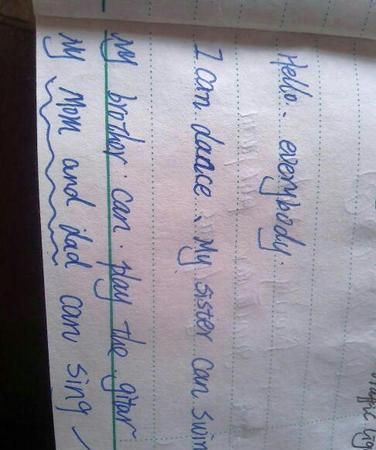 Hello. everybody.
I can dance. My sister can swim
My brother can play the gitar
My Mom and dad can sing